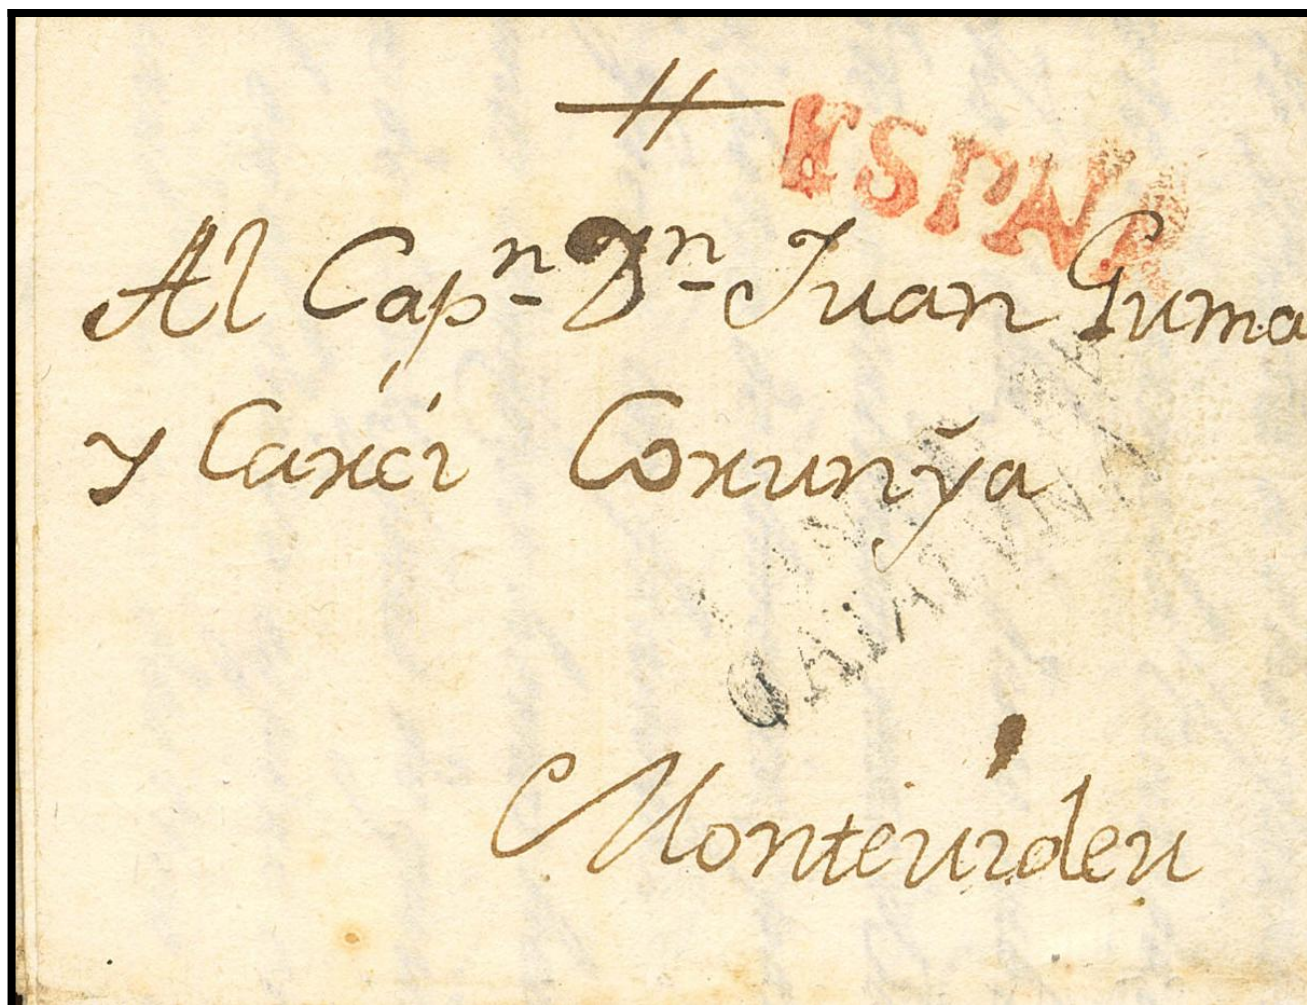 ESPAÑA
Al Capⁿ Dⁿ Juan Guma
y Carxci Corunỹa
CATALUNA
Montevideu